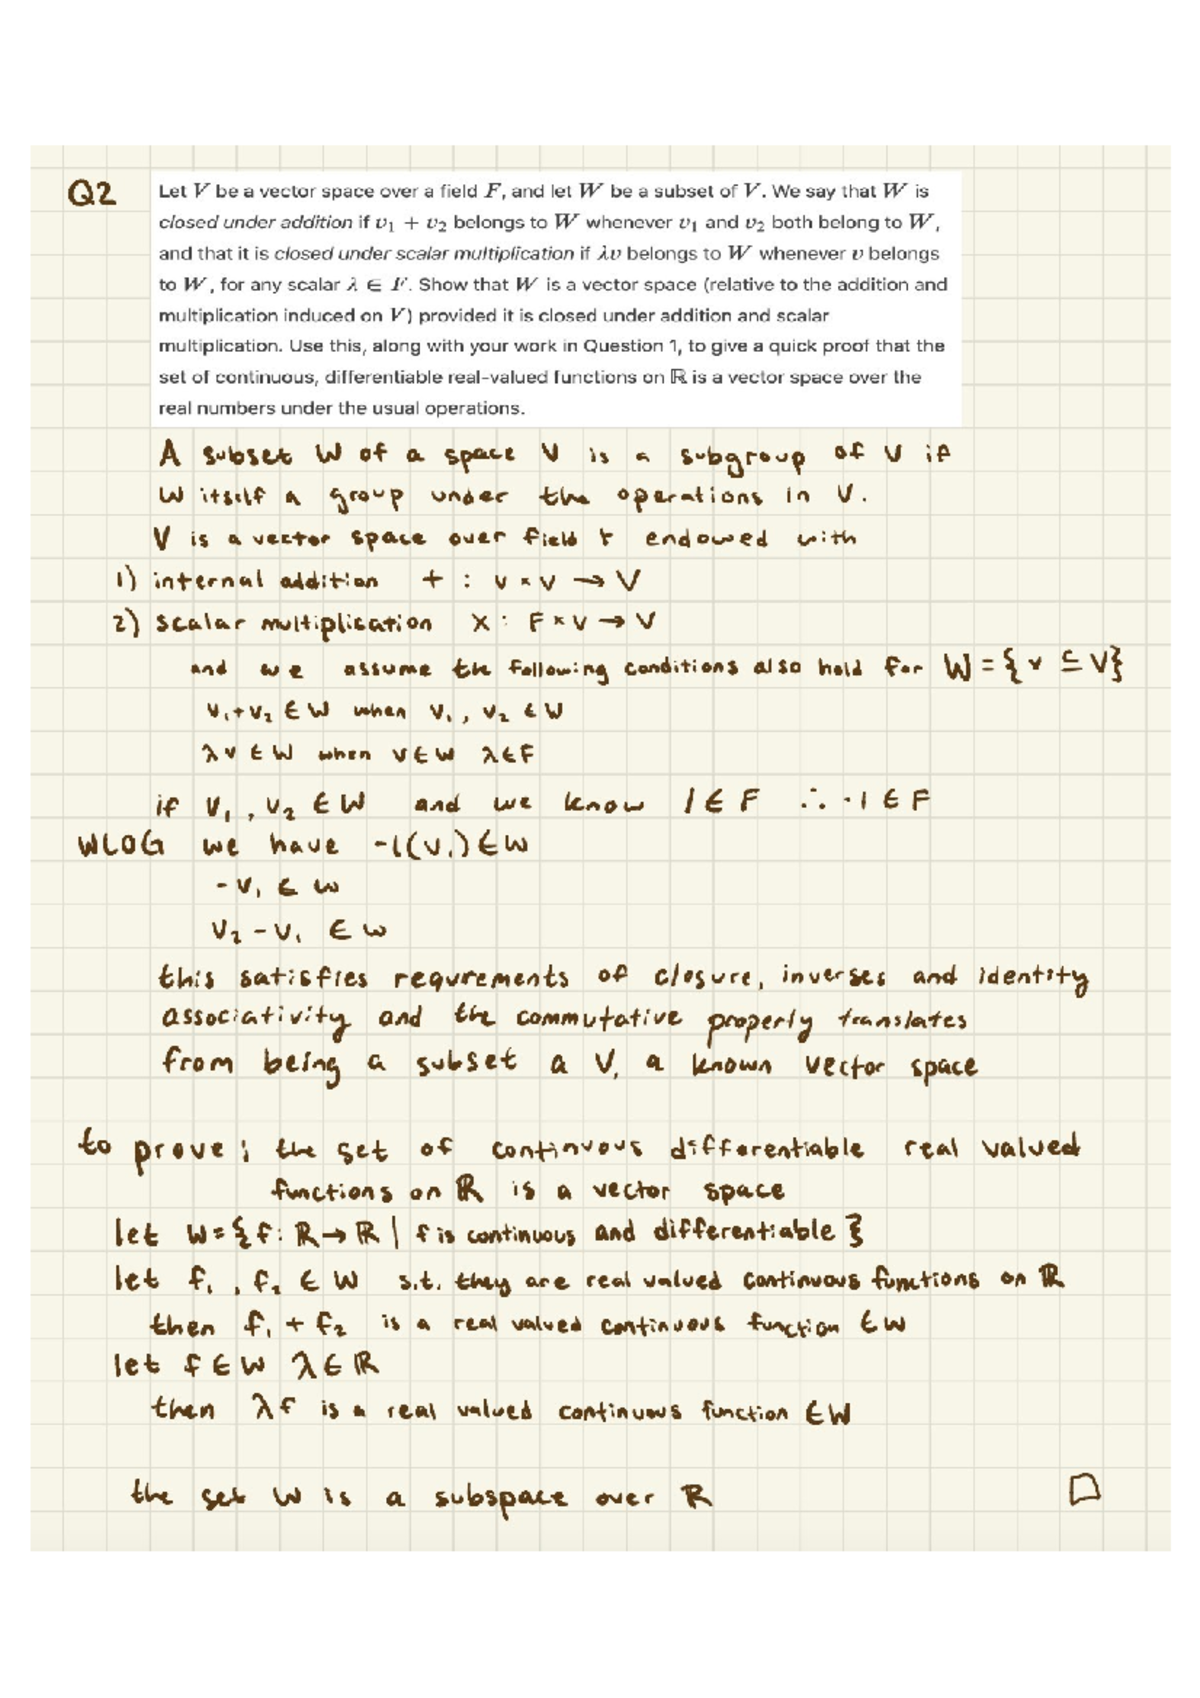 Q2
Let V be a vector space over a field F, and let W be a subset of V. We say that W is
closed under addition if v₁ + v₂ belongs to W whenever v₁ and v₂ both belong to W,
and that it is closed under scalar multiplication if λv belongs to W whenever v belongs
to W, for any scalar λ ∈ F. Show that W is a vector space (relative to the addition and
multiplication induced on V) provided it is closed under addition and scalar
multiplication. Use this, along with your work in Question 1, to give a quick proof that the
set of continuous, differentiable real-valued functions on ℝ is a vector space over the
real numbers under the usual operations.
A subset W of a space V is a subgroup of V if
W itself a group under the operations in V.
V is a vector space over field F endowed with
1) internal addition + : V × V → V
2) scalar multiplication X : F × V → V
and we assume the following conditions also hold for W = {v ⊆ V}
v₁+v₂ ∈ W when v₁, v₂ ∈ W
λv ∈ W when v ∈ W λ ∈ F
if v₁, v₂ ∈ W and we know 1 ∈ F ∴ -1 ∈ F
WLOG we have -1(v₁) ∈ W
-v₁ ∈ W
v₂ - v₁ ∈ W
this satisfies requrements of closure, inverses and identity
associativity and the commutative property translates
from being a subset a V, a known vector space
to prove: the set of continuous differentiable real valued
functions on ℝ is a vector space
let W = {f: ℝ → ℝ | f is continuous and differentiable}
let f₁, f₂ ∈ W s.t. they are real valued continuous functions on ℝ
then f₁ + f₂ is a real valued continuous function ∈ W
let f ∈ W λ ∈ ℝ
then λf is a real valued continuous function ∈ W
the set W is a subspace over ℝ □